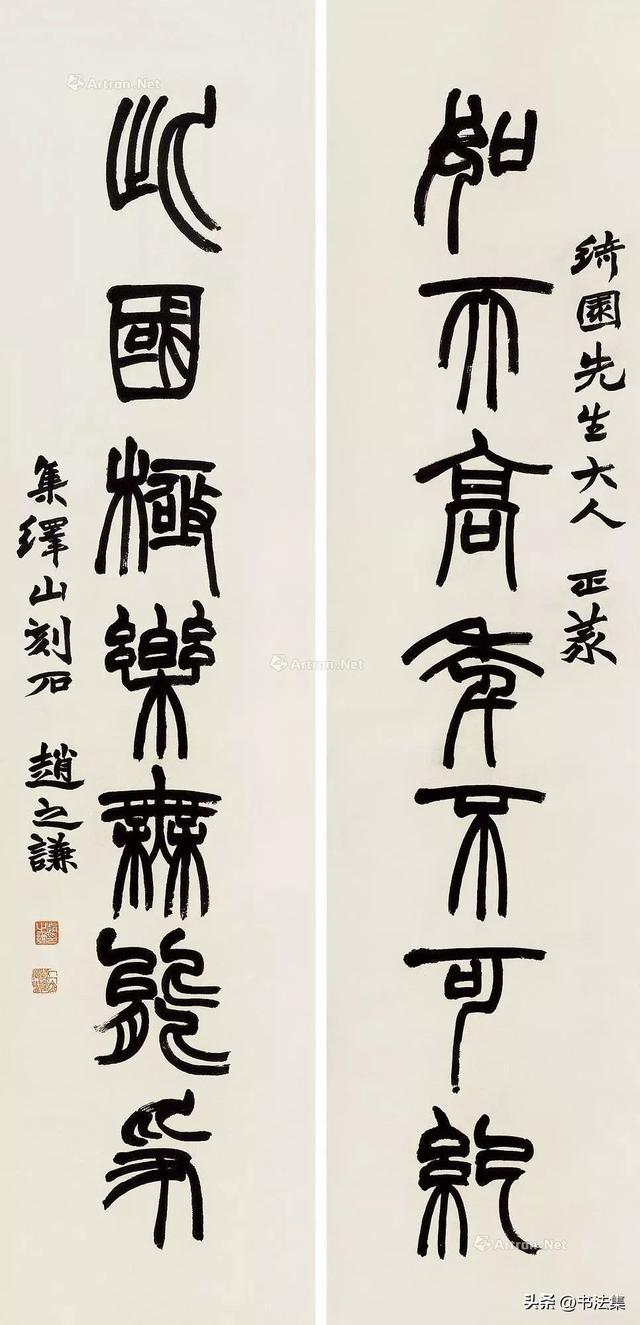 琦園先生大人 正篆
如天高年不可紀
此國極樂無能爭
集繹山刻石 趙之謙
Artron.Net
Artron.Net
Artron.Net
头条 @书法集